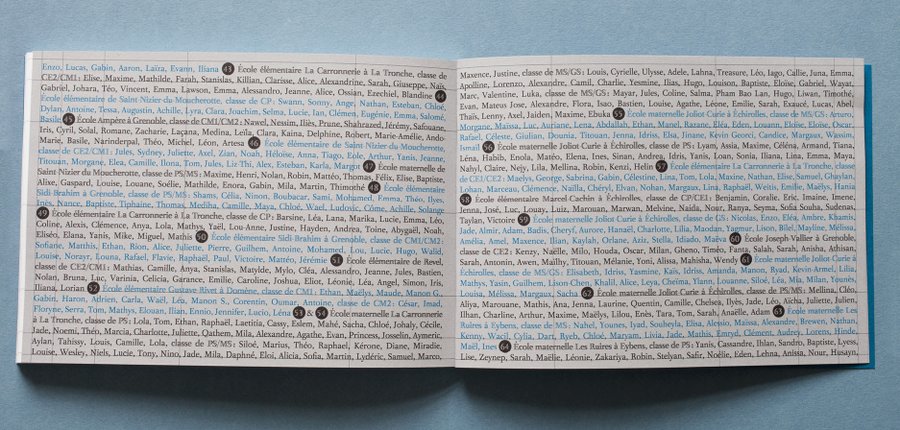 Enzo, Lucas, Gabin, Aaron, Laïra, Evann, Iliana 43 École élémentaire La Carronnerie à La Tronche, classe de
CE2/CM1 : Elise, Maxime, Mathilde, Farah, Stanislas, Killian, Clarisse, Alice, Alexandrine, Sarah, Giuseppe, Naïs,
Gabriel, Johara, Téo, Vincent, Emma, Lawson, Emma, Alessandro, Jeanne, Alice, Ossian, Ezechiel, Blandine 44
École élémentaire de Saint Nizier du Moucherotte, classe de CP : Swann, Sonny, Ange, Nathan, Esteban, Chloé,
Dylan, Antoine, Tessa, Augustin, Achille, Lyra, Clara, Joachim, Selma, Lucie, Ian, Clémen, Eugénie, Emma, Salomé,
Basile 45 École Ampère à Grenoble, classe de CM1/CM2 : Nawel, Nessim, Iliès, Prune, Shahrazed, Jérémy, Safouane,
Iris, Cyril, Solal, Romane, Zacharie, Laçana, Medina, Leïla, Clara, Kaina, Delphine, Robert, Marie-Amélie, Ando,
Marie, Basile, Narinderpal, Théo, Michel, Léon, Artesa 46 École élémentaire de Saint Nizier du Moucherotte,
classe de CE2/CM1 : Jules, Sydney, Juliette, Axel, Zian, Noah, Héloïse, Anna, Tiago, Eole, Arthur, Yanis, Jeanne,
Titouan, Morgane, Elea, Camille, Ilona, Tom, Jules, Liz-Thi, Alex, Esteban, Karla, Margot 47 École maternelle de
Saint Nizier du Moucherotte, classe de PS/MS : Maxime, Henri, Nolan, Robin, Mattéo, Thomas, Félix, Elise, Baptiste,
Alive, Gaspard, Louise, Louane, Soélie, Mathilde, Enora, Gabin, Mila, Martin, Thimothé 48 École élémentaire
Sidi-Brahim à Grenoble, classe de PS/MS : Shams, Célia, Ninon, Boubacar, Sami, Mohamed, Emma, Théo, Ilyes,
Inès, Nance, Baptiste, Tiphaine, Thomas, Mediha, Camille, Maya, Chloé, Wael, Ludovic, Côme, Achille, Solange
49 École élémentaire La Carronnerie à La Tronche, classe de CP : Barsine, Léa, Lana, Marika, Louise, Emma, Léo,
Coline, Alexis, Clémence, Anya, Lola, Mathys, Yaël, Lou-Anne, Justine, Hayden, Andrea, Toine, Abygaël, Noah,
Eliséo, Elana, Yanis, Mike, Miguel, Mathis 50 École élémentaire Sidi-Brahim à Grenoble, classe de CM1/CM2 :
Sofiane, Matthis, Ethan, Rion, Alice, Juliette, Pierre, Guilhem, Antoine, Mohamed, Lou, Lucie, Hugo, Walid,
Louise, Norayr, Louna, Rafael, Flavie, Raphaël, Paul, Victoire, Mattéo, Jérémie 51 École élémentaire de Revel,
classe de CE2/CM1 : Mathias, Camille, Anya, Stanislas, Matylde, Mylo, Cléa, Alessandro, Jeanne, Jules, Bastien,
Nolan, Bruna, Luc, Varinia, Celicia, Garance, Emilie, Caroline, Joshua, Elice, Léonie, Léa, Angel, Simon, Iris,
Iliana, Lorian 52 École élémentaire Gustave Rivet à Domène, classe de CM1 : Ethan, Maëlys, Maude, Manon G.,
Gabin, Haron, Adrien, Carla, Waël, Léa, Manon S., Corentin, Oumar, Antoine, classe de CM2 : César, Imad,
Floryne, Serra, Tom, Mathys, Elouan, Ilian, Ennio, Jennifer, Lucio, Léna 53 & 54 École maternelle La Carronnerie
à La Tronche, classe de PS : Lola, Tom, Ethan, Raphaël, Laetitia, Cassy, Eslem, Mahé, Sacha, Chloé, Johaly, Cécile,
Jade, Noemi, Théo, Marcia, Charlotte, Juliette, Qathem, Mila, Alexandre, Agathe, Evan, Princess, Josselin, Aymeric,
Aylan, Tahissy, Louis, Camille, Lola, classe de PS/MS : Siloé, Marius, Théo, Raphael, Kérone, Diane, Miradie,
Louise, Wesley, Niels, Lucie, Tony, Nino, Jade, Mila, Daphné, Eloi, Alicia, Sofia, Martin, Lydéric, Samuel, Marco,
Maxence, Justine, classe de MS/GS : Louis, Cyrielle, Ulysse, Adele, Lahna, Treasure, Léo, Iago, Callie, Juna, Emma,
Apolline, Lorenzo, Alexandre, Camil, Charlie, Yesmine, Ilias, Hugo, Louison, Baptiste, Eloïse, Gabriel, Wayat,
Marc, Valentine, Luka, classe de MS/GS : Mayar, Jules, Coline, Salma, Pham Bao Lan, Hugo, Liwan, Timothé,
Evan, Mateus Jose, Alexandre, Flora, Isao, Bastien, Louise, Agathe, Léone, Emilie, Sarah, Exaucé, Lucas, Abel,
Thaïs, Lenny, Axel, Jaiden, Maxime, Ebuka 55 École maternelle Joliot Curie à Échirolles, classe de MS/GS : Arturo,
Morgane, Maïssa, Luc, Auriane, Lena, Abdallah, Ethan, Manel, Razane, Eléa, Eden, Louann, Eloïse, Eloïse, Oscar,
Rafael, Céleste, Giulian, Dounia, Titouan, Jenna, Idriss, Elsa, Jinane, Kevin Geori, Candice, Margaux, Wassim,
Ismail 56 École maternelle Joliot Curie à Échirolles, classe de PS : Lyam, Assia, Maxime, Céléna, Armand, Tiana,
Léna, Habib, Enola, Matéo, Elena, Ines, Sinan, Andrea, Idris, Yanis, Loan, Sonia, Iliana, Lina, Emma, Maya,
Nahyl, Claire, Nejy, Lila, Mellina, Robin, Kenzi, Helin 57 École élémentaire La Carronnerie à La Tronche, classe
de CE1/CE2 : Maelys, George, Sabrina, Gabin, Célestine, Lina, Tom, Lola, Maxine, Nathan, Elise, Samuel, Ghaylan,
Lohan, Marceau, Clémence, Naïlla, Chéryl, Elvan, Nohan, Margaux, Lina, Raphaël, Weitis, Emilie, Maëlys, Hania
58 École élémentaire Marcel Cachin à Échirolles, classe de CP/CE1 : Benjamin, Coralie, Eric, Imaine, Imene,
Jenna, José, Luc, Louay, Luiz, Marouan, Marwan, Melvine, Naida, Nour, Ranya, Seyma, Sofia Souha, Sudenas,
Taylan, Victoire 59 École maternelle Joliot Curie à Échirolles, classe de GS : Nicolas, Enzo, Léa, Ambre, Khamis,
Jade, Almir, Adam, Badis, Cheryf, Aurore, Hanaé, Charlotte, Lilia, Maodan, Yagmur, Lison, Bilel, Mayline, Mélissa,
Amélia, Amel, Maxence, Ilian, Kaylah, Orlane, Aziz, Stella, Idiado, Maëva 60 École Joseph Vallier à Grenoble,
classe de CE2 : Kenzy, Naëlle, Milo, Houda, Oscar, Milan, Gheno, Timéo, Fanta, Salah, Sarah, Anisha, Athisan,
Sarah, Antonin, Awen, Mailhy, Titouan, Mélanie, Toni, Alissa, Mahisha, Wendy 61 École maternelle Joliot Curie à
Échirolles, classe de MS/GS : Elisabeth, Idriss, Yasmine, Kaïs, Idriss, Amanda, Manon, Ryad, Kevin-Armel, Lilia,
Mathys, Yasin, Guilhem, Lison-Chen, Khalil, Alice, Leya, Cheima, Ylann, Louanne, Siloé, Léa, Mïa, Milan, Younès,
Louisa, Mélissa, Margaux, Sacha 62 École maternelle Joliot Curie à Échirolles, classe de PS/MS : Mellina, Cléo,
Aliya, Marouane, Mathis, Ana, Jenna, Laurine, Quentin, Camille, Chelsea, Ilyès, Jade, Léo, Aïcha, Juliette, Julien,
Ilhan, Charline, Arthur, Maxime, Maëlys, Lilou, Enès, Tara, Tom, Sarah, Anaëlle, Adam 63 École maternelle Les
Ruires à Eybens, classe de MS : Nahel, Younes, Iyad, Souheyla, Elisa, Alessio, Maïssa, Alexandre, Brewen, Nathan,
Kenny, Wacil, Cylia, Dart, Ryeb, Chloé, Maryam, Livia, Jade, Mathis, Esmyd, Clément, Audrey, Lorens, Hinde,
Maël, Ines 64 École maternelle Les Ruires à Eybens, classe de PS : Yanis, Cassandre, Ihlan, Sandro, Baptiste, Lyess,
Lise, Zeynep, Sarah, Maëlie, Léonie, Zakariya, Robin, Stelyan, Safir, Noélie, Eden, Lehna, Anissa, Nour, Husayn,